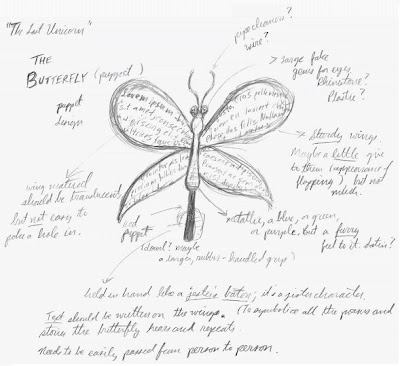 "The Last Unicorn"
pipecleaners?
wire?
THE
BUTTERFLY (puppet)
puppet
design
> large fake
gems for eyes
Rhinestone?
Plastic?
Lorem ipsum
sit amet, conse
> Sturdy wings.
Maybe a little give
to them (appearance of
flapping) but no
much.
wing material
should be translucent
but not easy to
poke a hole in.
rod
puppet
(dowel? maybe
a longer, rubber-handled grip)
metallic, a blue, or green,
or purple, but a funny
feel to it. Satin?
held in hand like a jester's baton; it's a jester character.
Text should be written on the wings. (To symbolize all the poems and
stories the butterfly hears and repeats.
Needs to be easily passed from person to person.